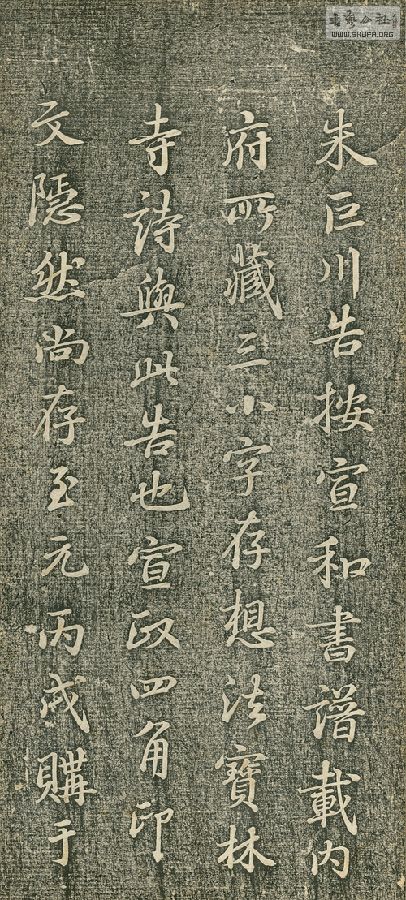 朱巨川告按宣和書譜載內
府所藏三小字存想法寶林
寺詩與此告也宣政四角印
文隱然尚存至元丙戌購于
書藝公社
WWW.SHUFA.ORG